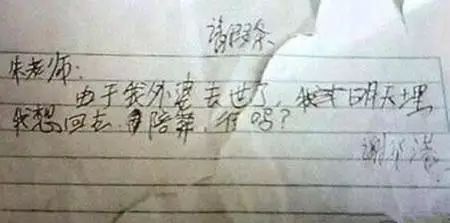 请假条
朱老师：
由于我外婆去世了，我 明天埋
我想回去 陪葬，行吗？
谢 港